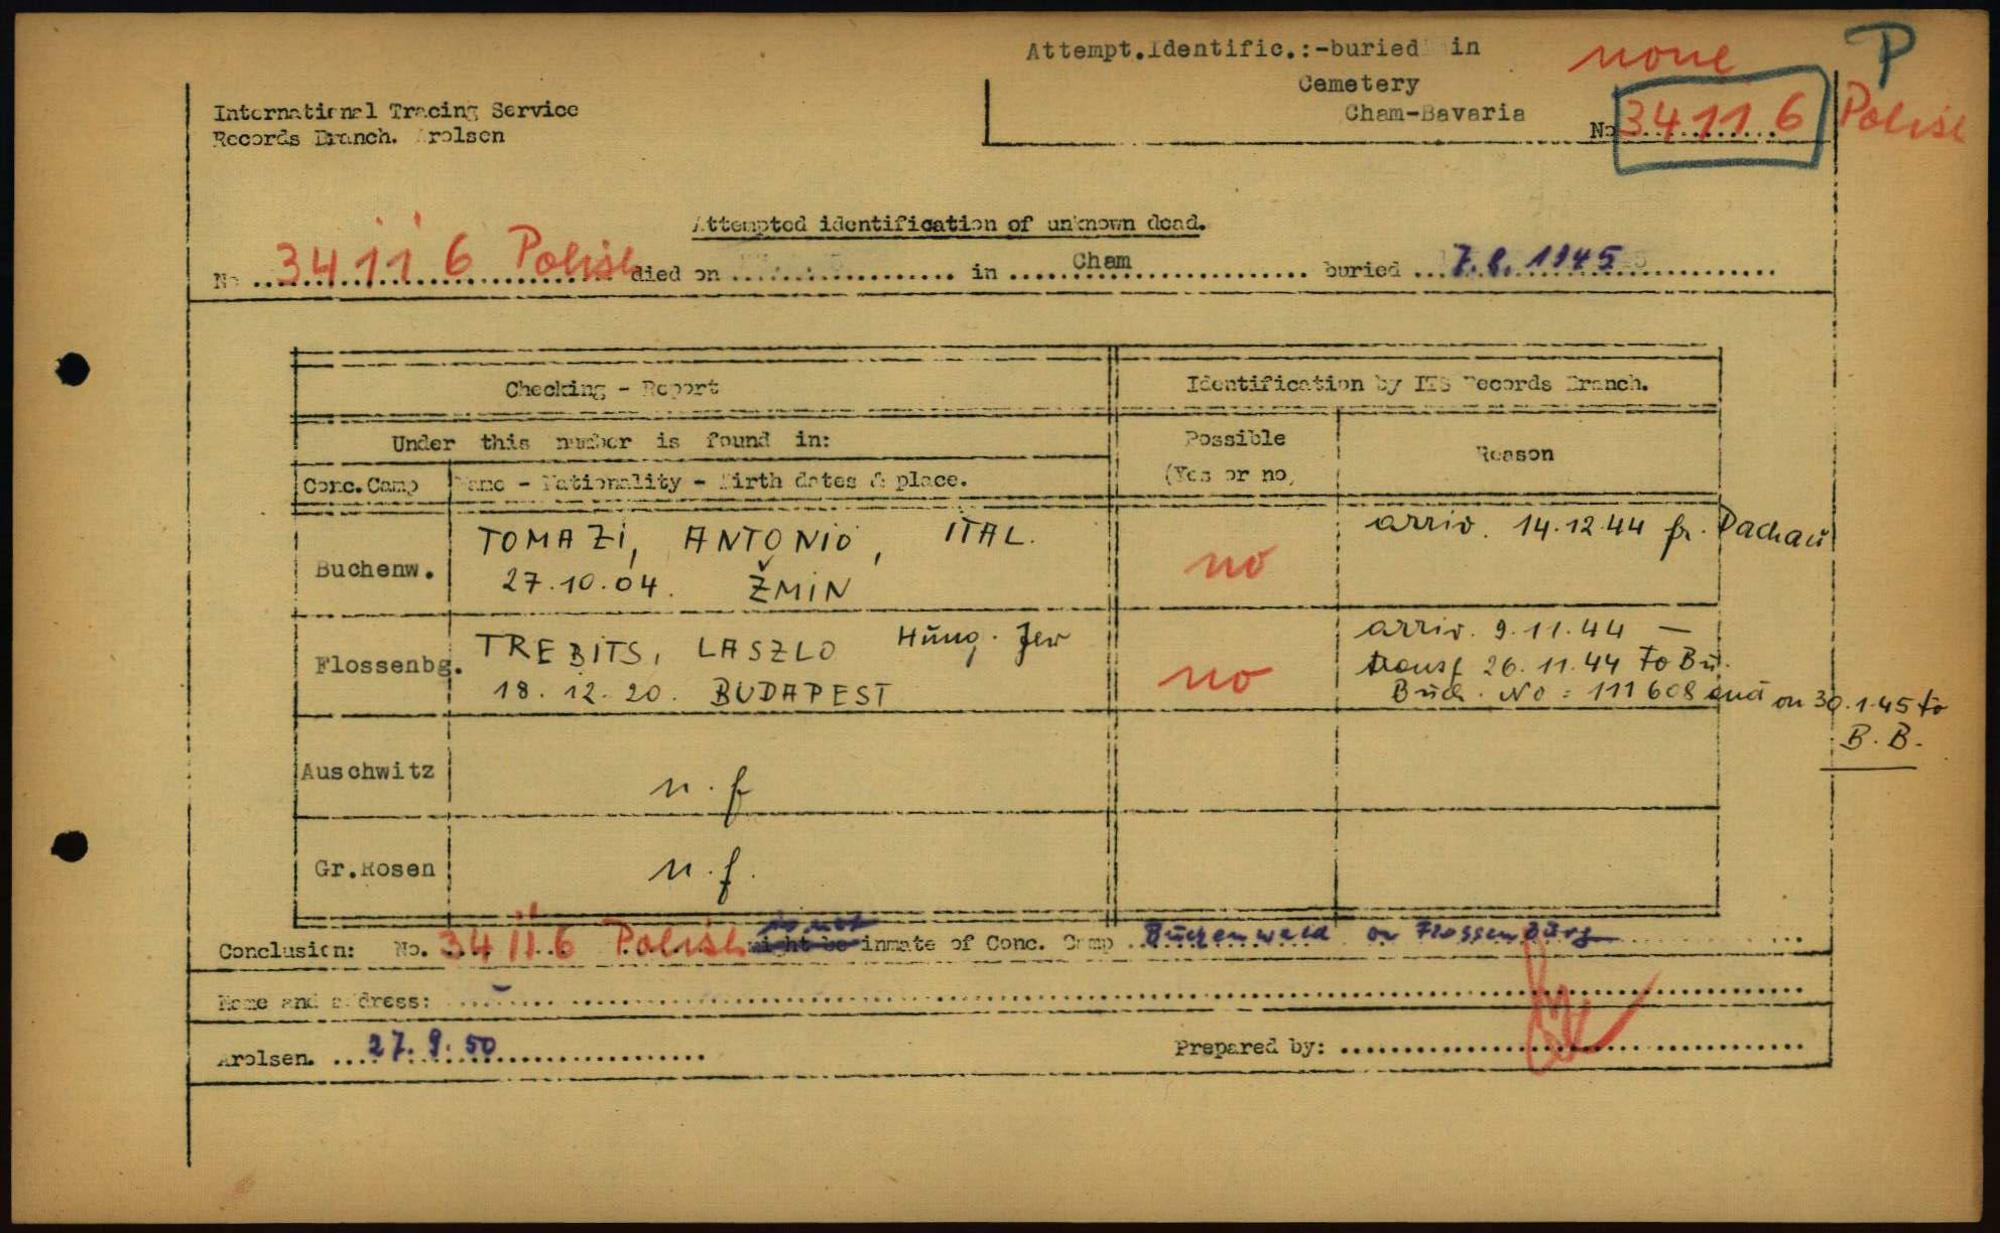 Attempt.Identific.:-buried in
none
P
Cemetery
International Tracing Service
Cham-Bavaria
No 34116 Polish
Records Branch. Arolsen
Attempted identification of unknown dead.
No 34116 Polish died on in Cham buried 7.8.1945
Checking - Report
Identification by ITS Records Branch.
Under this number is found in:
Possible
(Yes or no)
Reason
Conc.Camp
Name - Nationality - Birth dates & place.
TOMAZI, ANTONIO, ITAL.
no
arriv. 14.12.44 fr. Dachau
Buchenw.
27.10.04. ŽMIN
TREBITS, LASZLO Hung. Jew
no
arriv. 9.11.44 —
Flossenbg.
transf 26.11.44 to Bu.
18.12.20. BUDAPEST
Buch. No: 111608 and on 30.1.45 to
B.B.
Auschwitz
n.f
Gr.Rosen
n.f.
is not
Conclusion: No. 34116 Polish might be inmate of Conc. Camp Buchenwald or Flossenbürg
Name and address: -
Arolsen. 27.9.50
Prepared by: